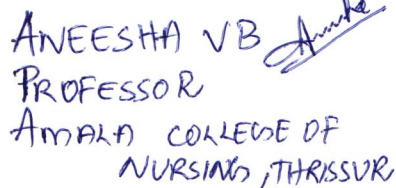 ANEESHA VB
PROFESSOR
AMALA COLLEGE OF
NURSING, THRISSUR